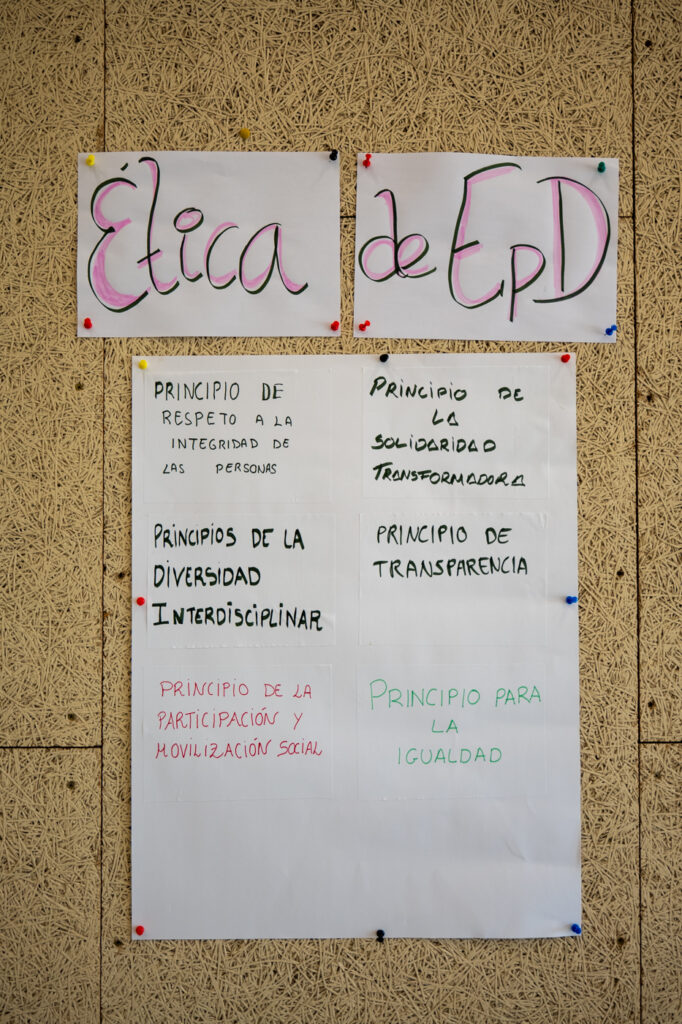 Ética
de EpD
PRINCIPIO DE
RESPETO A LA
INTEGRIDAD DE
LAS PERSONAS
PRINCIPIO DE
LA
SOLIDARIDAD
TRANSFORMADORA
PRINCIPIOS DE LA
DIVERSIDAD
INTERDISCIPLINAR
PRINCIPIO DE
TRANSPARENCIA
PRINCIPIO DE LA
PARTICIPACIÓN Y
MOVILIZACIÓN SOCIAL
PRINCIPIO PARA
LA
IGUALDAD